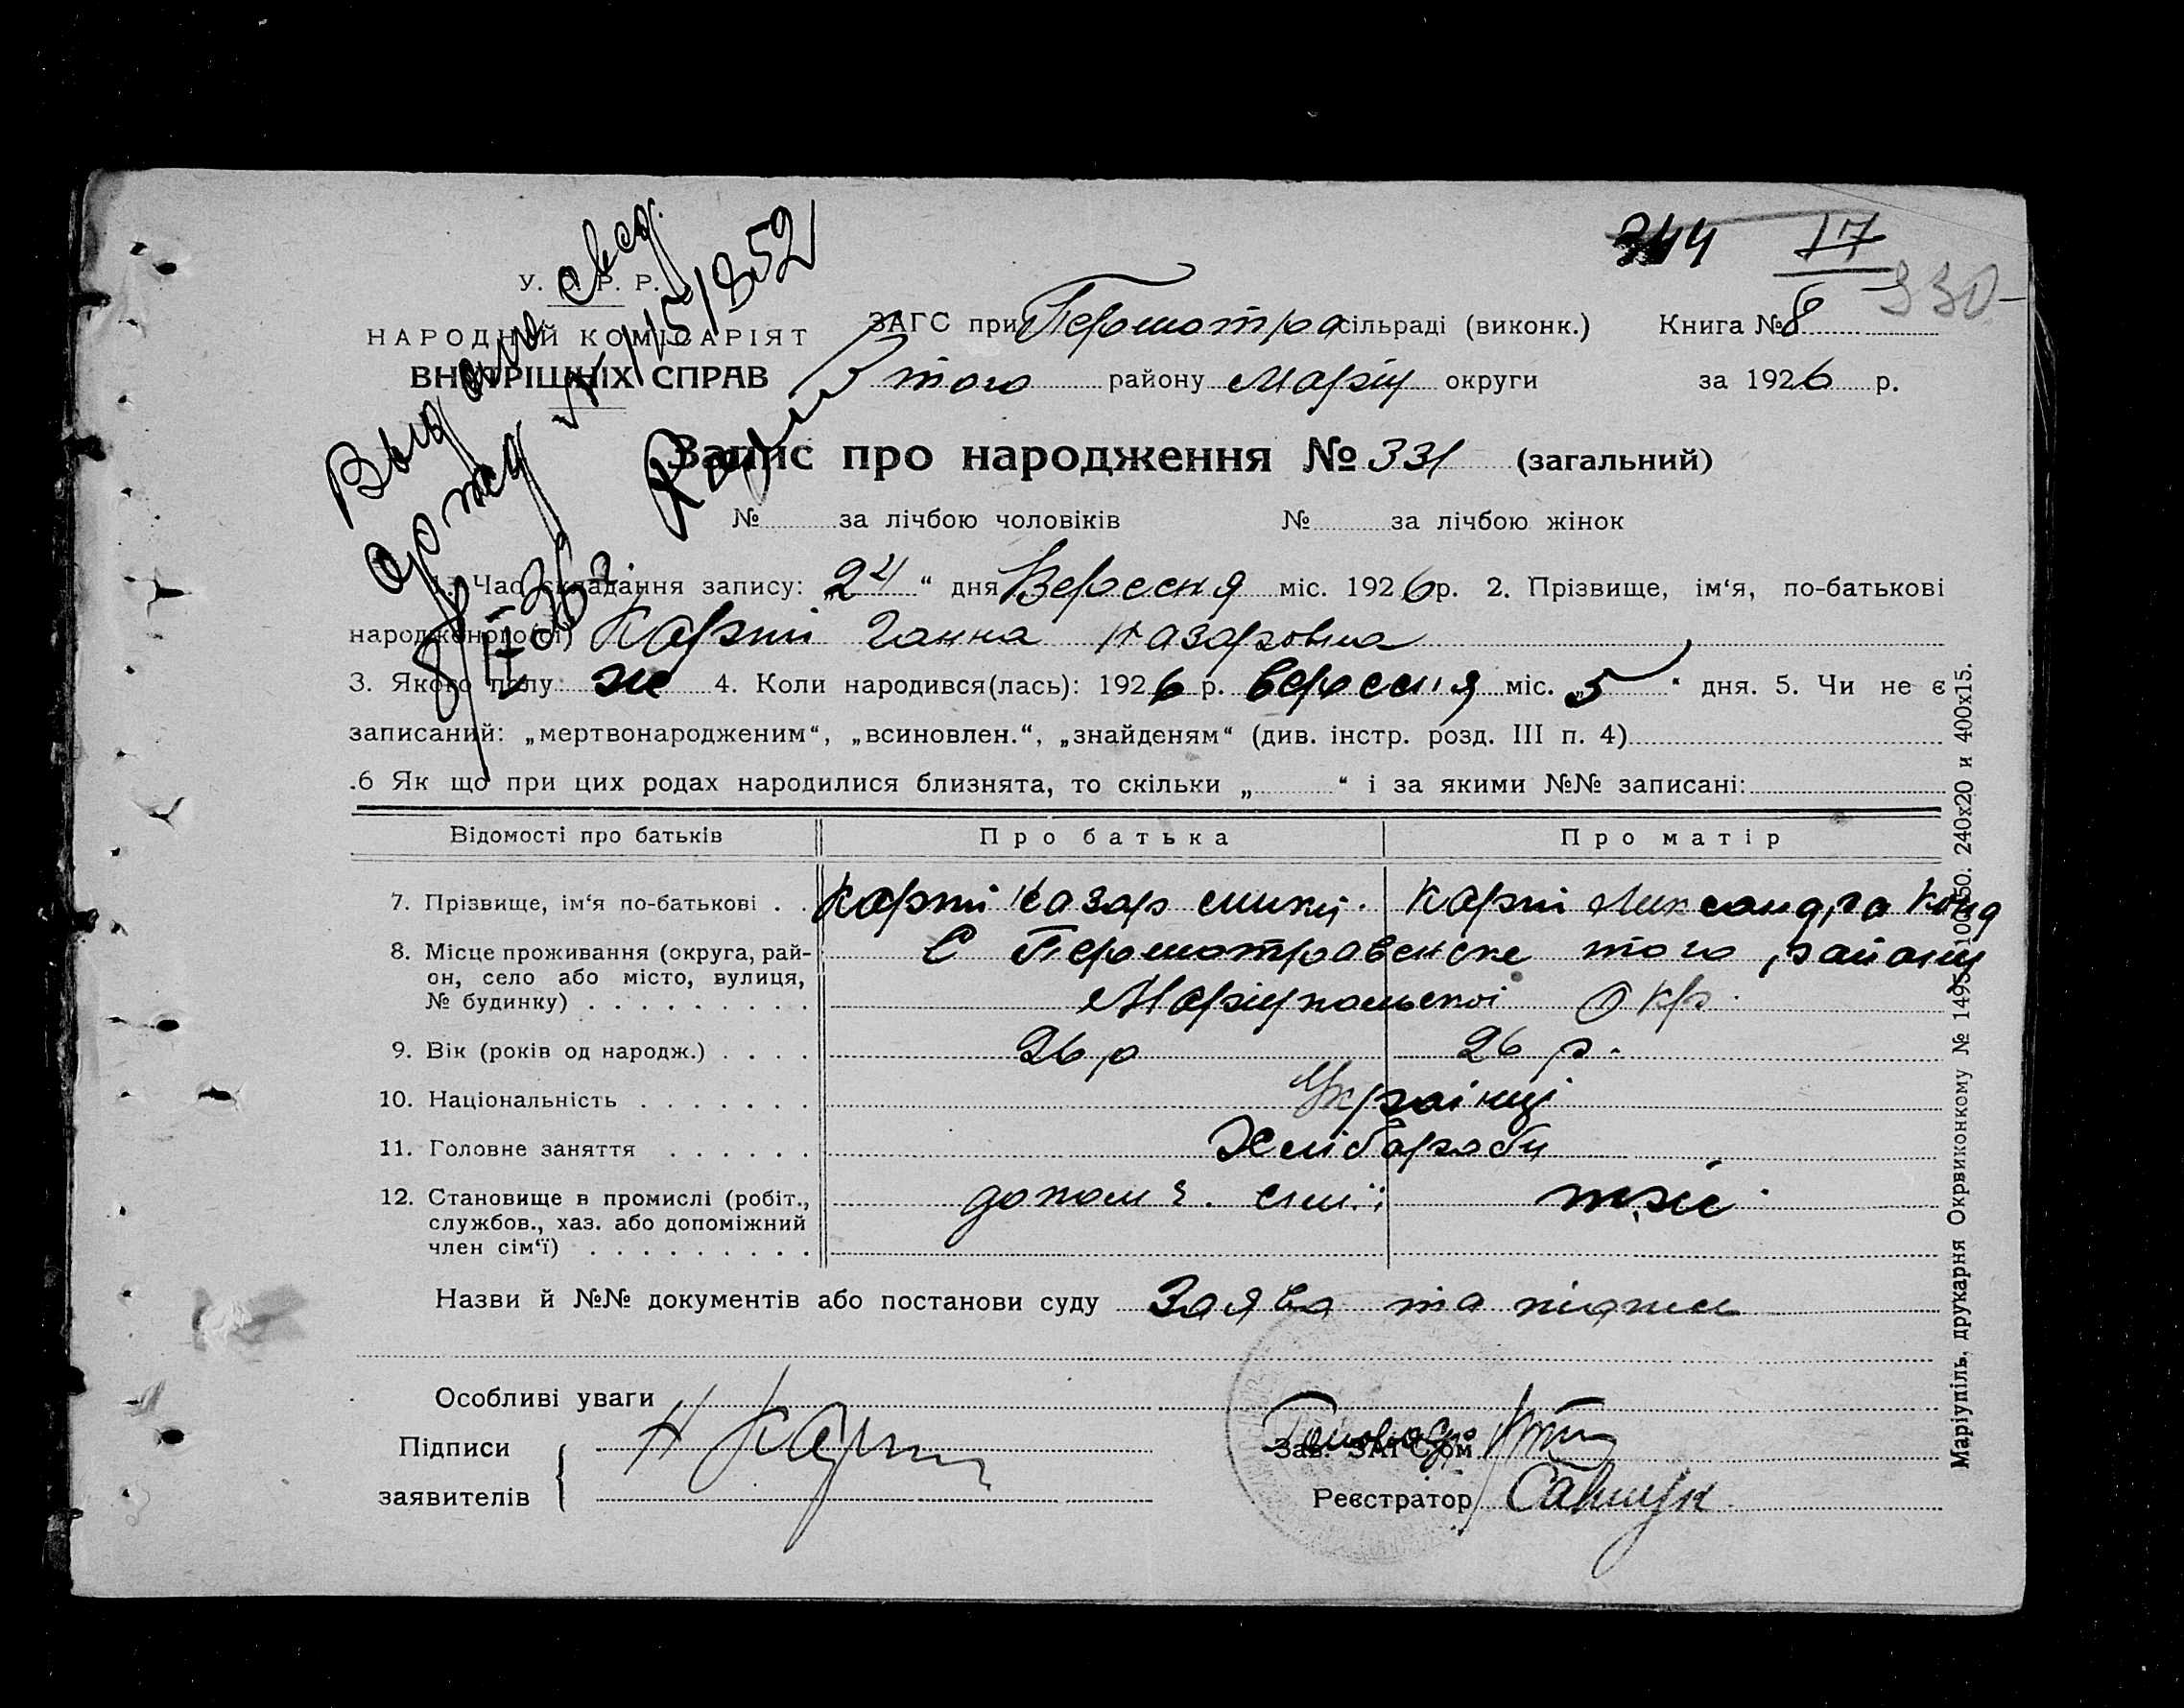 344 17
330
У. С. Р. Р.
НАРОДНИЙ КОМІСАРІЯТ
ВНУТРІШНІХ СПРАВ
ЗАГС при Першотра сільраді (виконк.) Книга № 8
того району Маріу округи за 1926 р.
Выдано свед
рожд № 115/1352
8/II-36 г.
Запис про народження № 331 (загальний)
№ за лічбою чоловіків № за лічбою жінок
1. Час складання запису: „24“ дня Вересня міс. 1926 р. 2. Прізвище, ім‘я, по-батькові
народженого(ої) Карпі Ганна Назаровна
3. Якого полу же 4. Коли народився(лась): 1926 р. вересня міс. „5“ дня. 5. Чи не є
записаний: „мертвонародженим“, „всиновлен.“, „знайденям“ (див. інстр. розд. III п. 4)
.6 Як що при цих родах народилися близнята, то скільки „ “ і за якими №№ записані:
Відомості про батьків Про батька Про матір
7. Прізвище, ім‘я по-батькові . . Карпі Назар Карпі Конд
8. Місце проживання (округа, рай-
он, село або місто, вулиця,
№ будинку) . . . . . . . . .
С Першотравенске того району
Маріупольскоі Окр.
9. Вік (років од народж.) . . . . 26 р 26 р.
10. Національність . . . . . . . Українці
11. Головне заняття . . . . . . Хлібороби
12. Становище в промислі (робіт.,
службов., хаз. або допоміжний
член сім‘ї) . . . . . . . . .
допом ч. сім.ї теж
Назви й №№ документів або постанови суду Заява та підпис
Особливі уваги
Підписи
заявителів
Н Карпи
Зав. ЗАГС‘ом
Реєстратор
Маріупіль, друкарня Окрвиконкому № 1495-10050. 240х20 и 400х15.